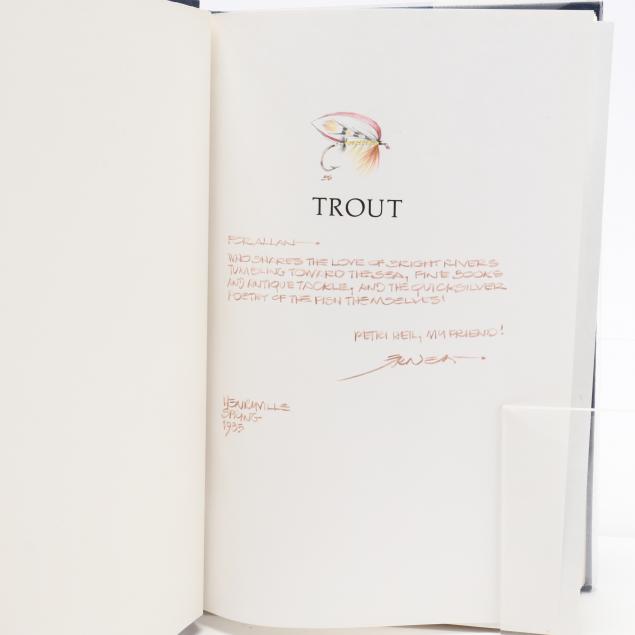 TROUT
FOR ALLAN—.
WHO SHARES THE LOVE OF BRIGHT RIVERS
TUMBLING TOWARD THE SEA, FINE BOOKS
AND ANTIQUE TACKLE, AND THE QUICKSILVER
POETRY OF THE FISH THEMSELVES!
PETRI HEIL, MY FRIEND!
ERNEST.
HENRYVILLE
SPRING
1985